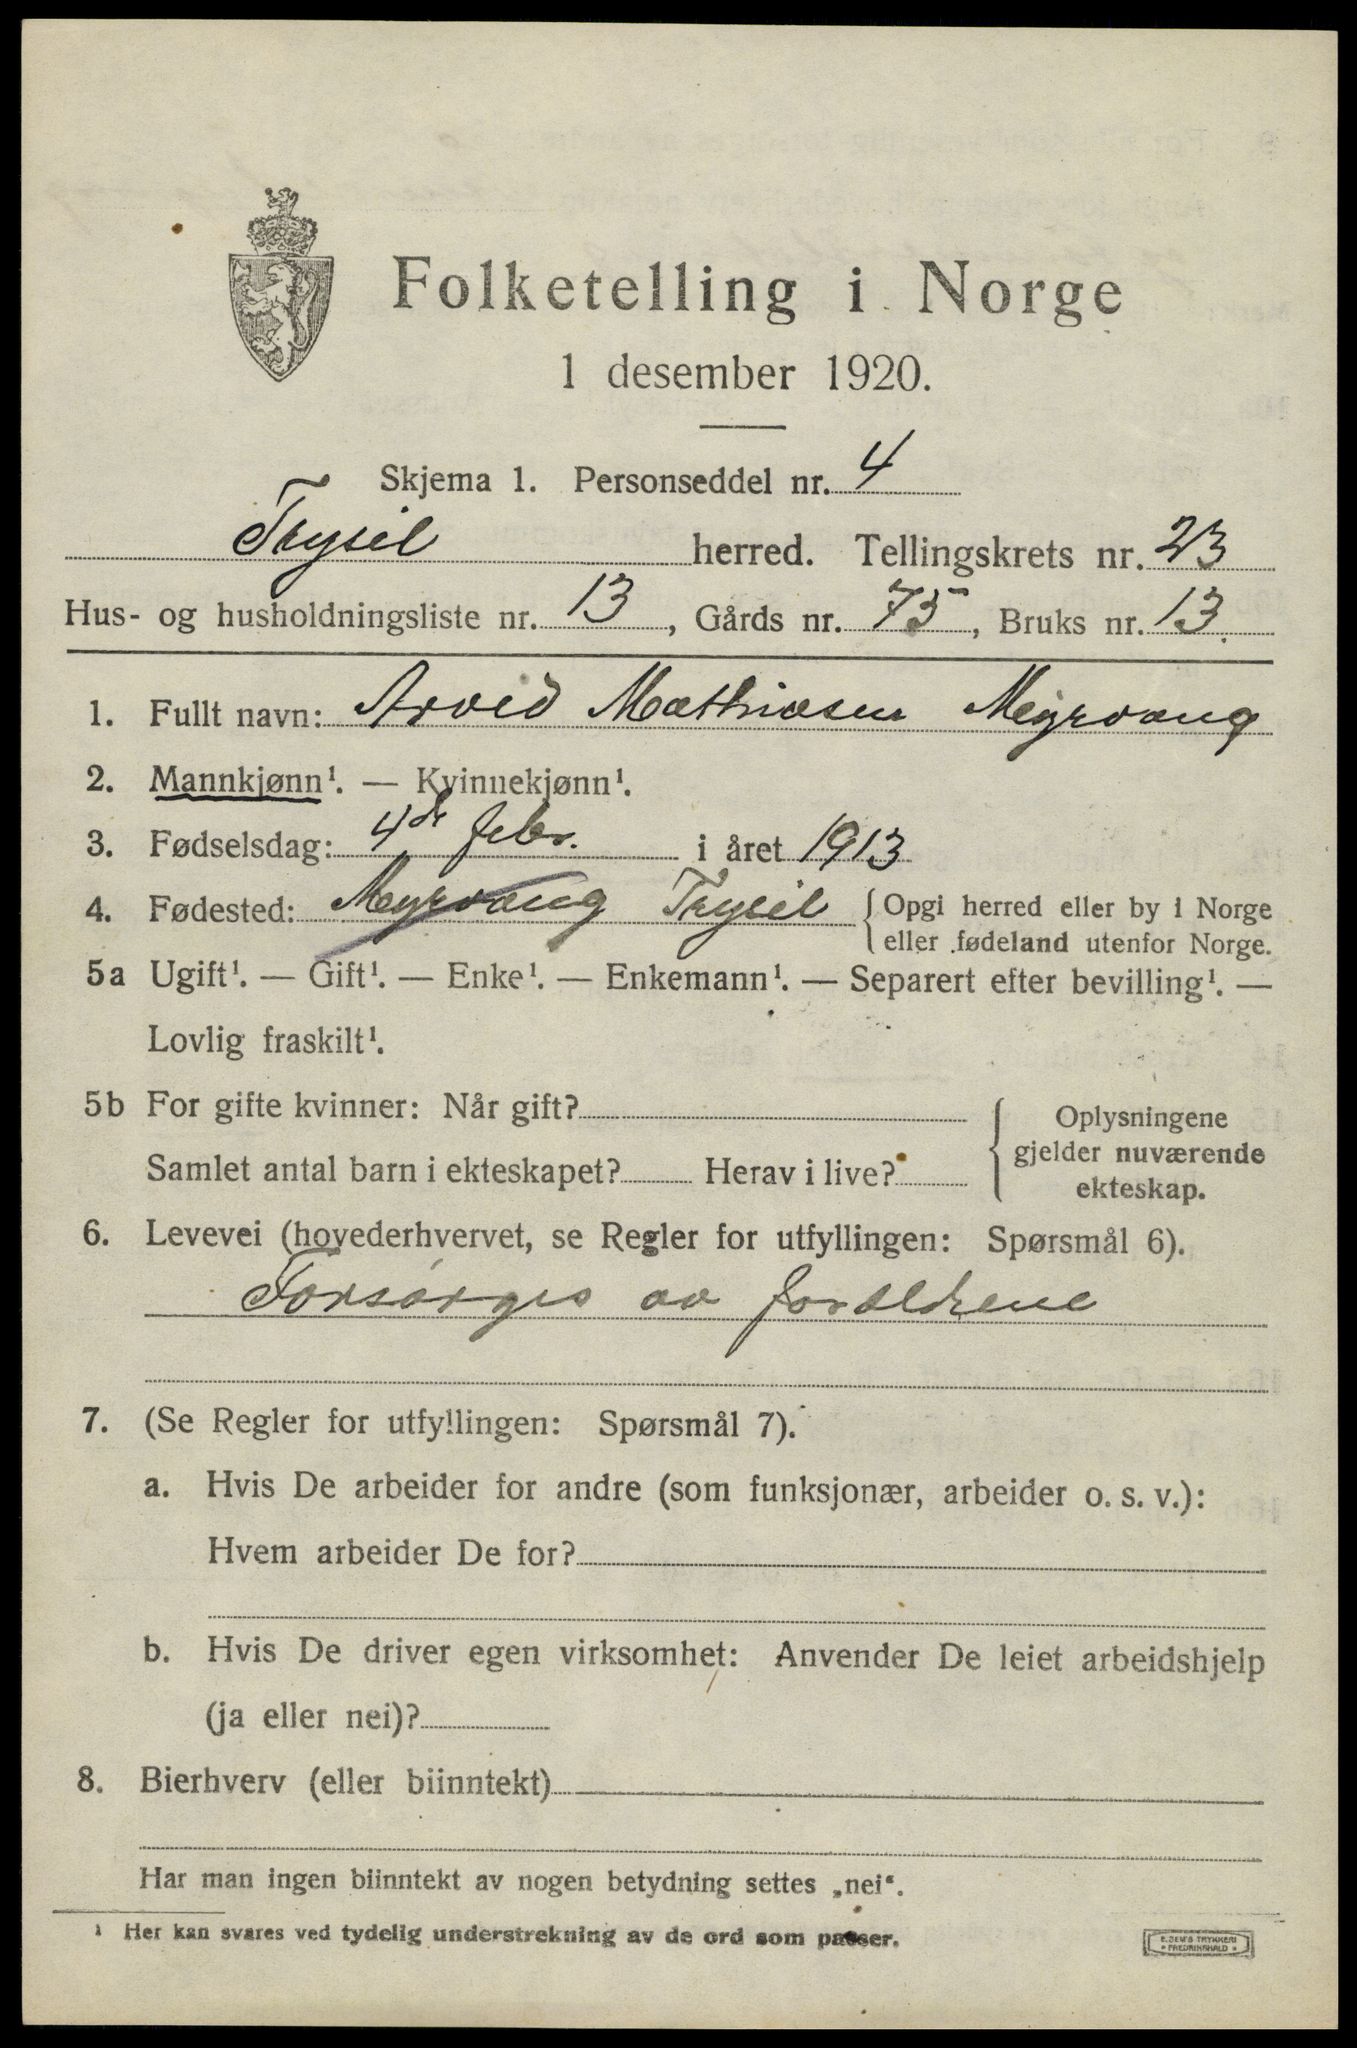 Folketelling i Norge
1 desember 1920.
Skjema 1. Personseddel nr. 4
Trysil herred. Tellingskrets nr. 23
Hus- og husholdningsliste nr. 13, Gårds nr. 75, Bruks nr. 13.
1. Fullt navn: Arvid Mathiasen Myrvang
2. Mannkjønn¹. — Kvinnekjønn¹.
3. Fødselsdag: 4de febr. i året 1913
4. Fødested: Myrvang Trysil { Opgi herred eller by i Norge
eller fødeland utenfor Norge.
5a Ugift¹. — Gift¹. — Enke¹. — Enkemann¹. — Separert efter bevilling¹. —
Lovlig fraskilt¹.
5b For gifte kvinner: Når gift?
Samlet antal barn i ekteskapet? Herav i live?
Oplysningene
gjelder nuværende
ekteskap.
6. Levevei (hovederhvervet, se Regler for utfyllingen: Spørsmål 6).
Forsørges av forældrene
7. (Se Regler for utfyllingen: Spørsmål 7).
a. Hvis De arbeider for andre (som funksjonær, arbeider o. s. v.):
Hvem arbeider De for?
b. Hvis De driver egen virksomhet: Anvender De leiet arbeidshjelp
(ja eller nei)?
8. Bierhverv (eller biinntekt)
Har man ingen biinntekt av nogen betydning settes „nei“.
¹ Her kan svares ved tydelig understrekning av de ord som passer.
E. SEM'S TRYKKERI
• FREDRIKSHALD •